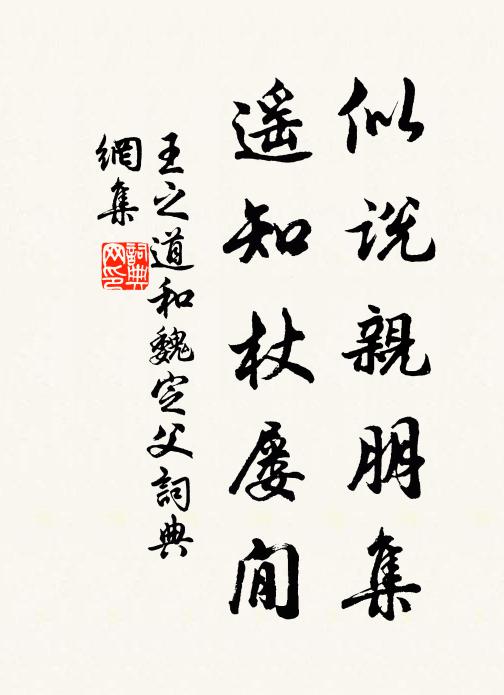 似说親朋集
遥知杖屡间
王之道和魏定父詞典
網集
詞典
网印